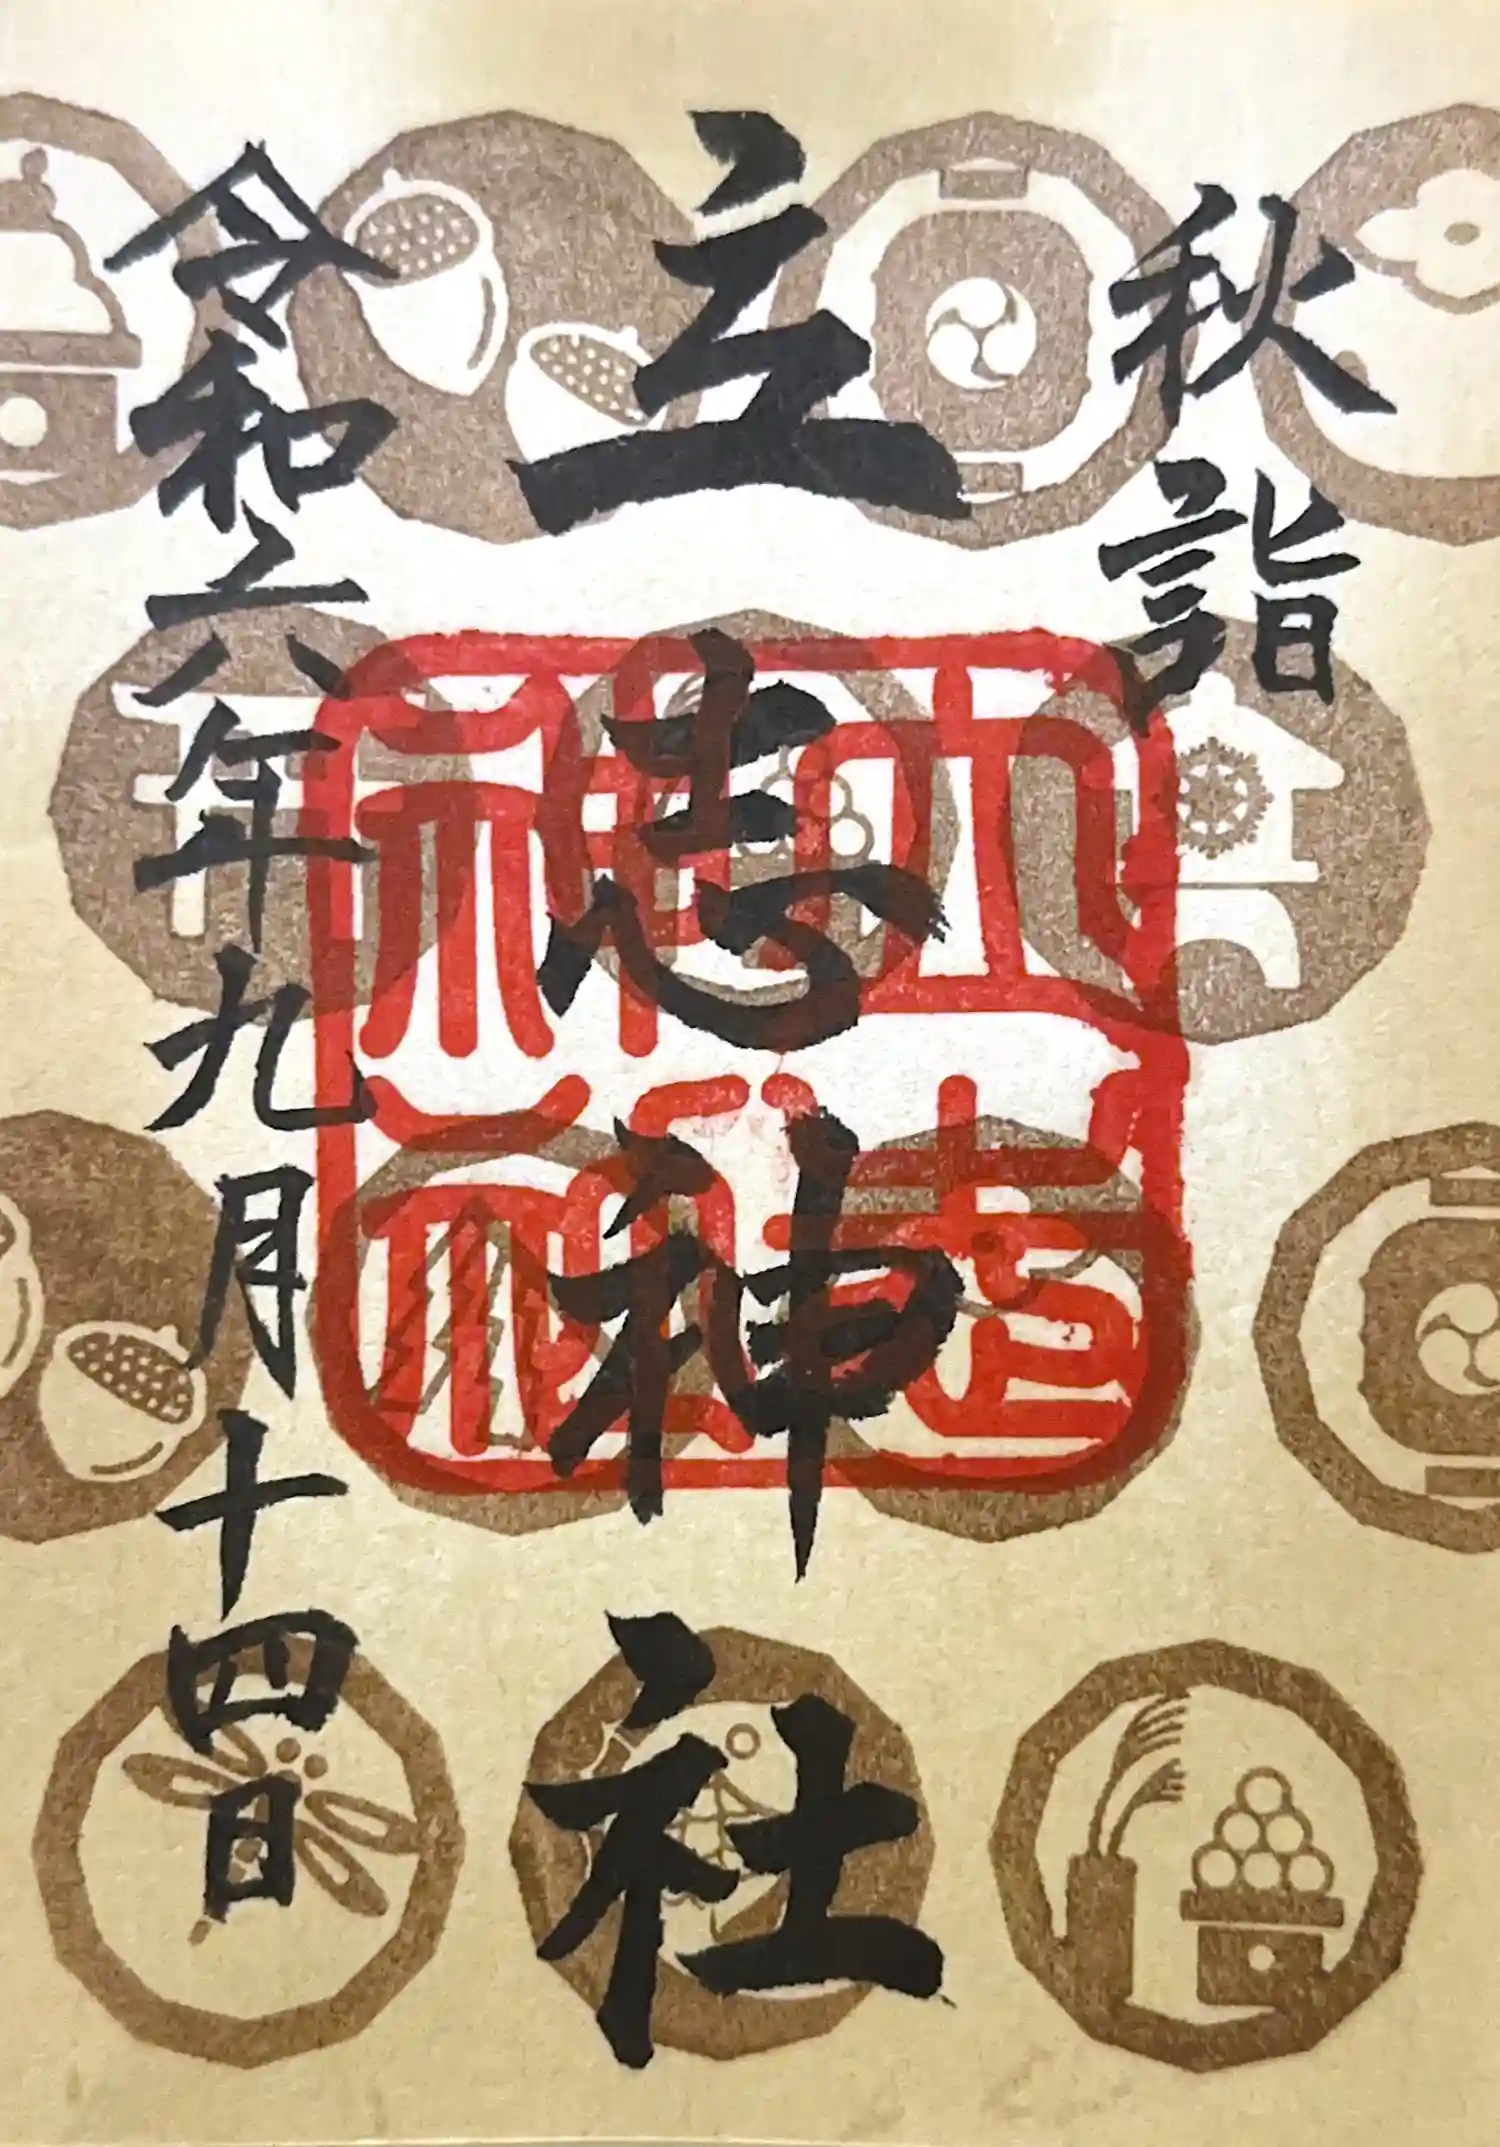 秋詣
立志神社
立志神社
令和六年九月十四日